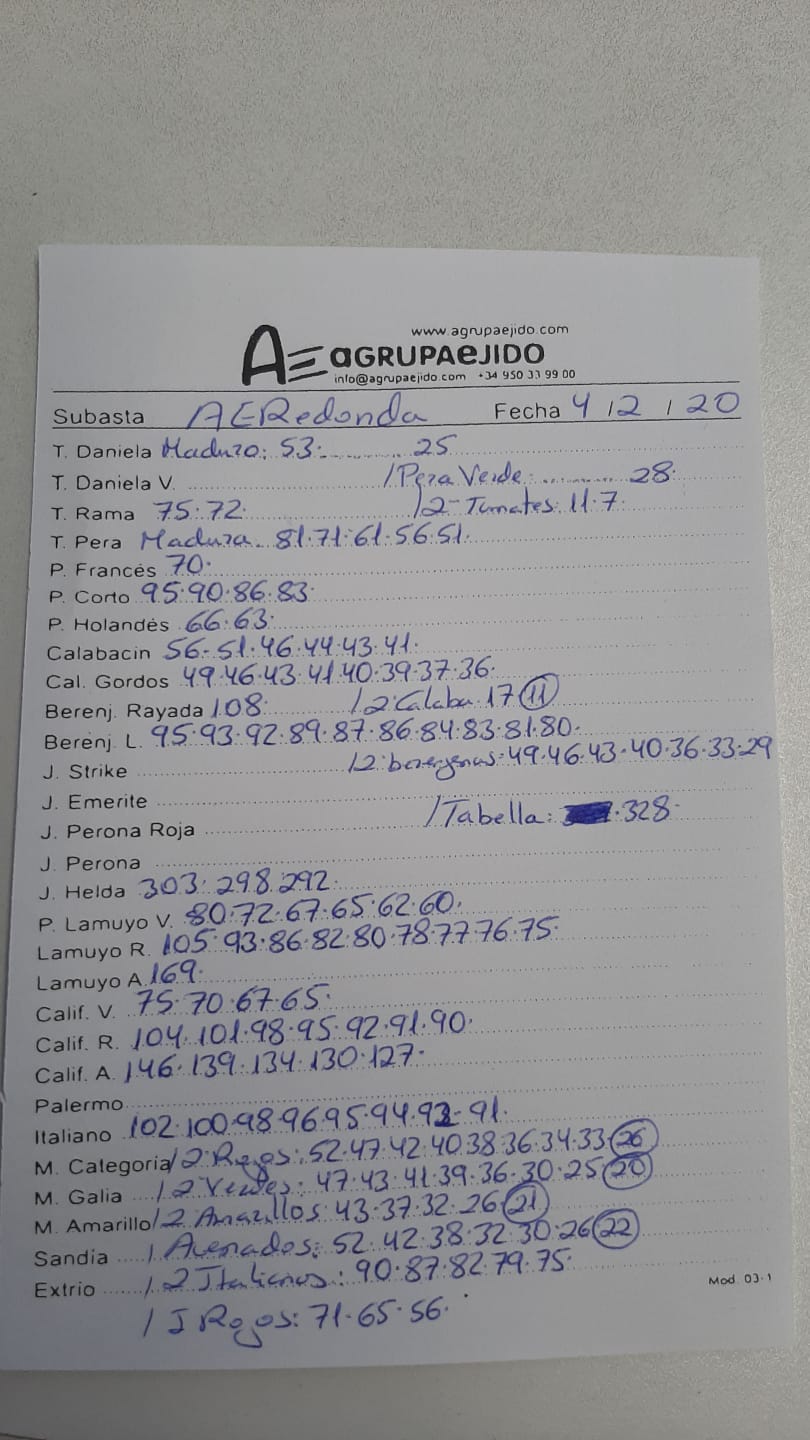 www.agrupaejido.com
AE aGRUPAeJIDO
info@agrupaejido.com +34 950 33 99 00
Subasta AERedonda Fecha 4 12 / 20
T. Daniela Maduro: 53. 25
T. Daniela V. / Pera Verde: 28.
T. Rama 75.72. / 2-Tumates: 11.7.
T. Pera Madura. 81.71.61.56.51.
P. Francés 70.
P. Corto 95.90.86.83.
P. Holandés 66.63.
Calabacin 56-51.46.44.43.41.
Cal. Gordos 49.46.43.41.40.39.37.36.
Berenj. Rayada 108. / 2 Calaba. 17 11
Berenj. L. 95.93.92.89.87.86.84.83.81.80.
J. Strike / 2 berengenas: 49.46.43.40.36.33.29
J. Emerite
J. Perona Roja / Tabella: .328.
J. Perona
J. Helda 303.298.292.
P. Lamuyo V. 80.72.67.65.62.60.
Lamuyo R. 105.93.86.82.80.78.77.76.75.
Lamuyo A. 169.
Calif. V. 75.70.67.65.
Calif. R. 104.101.98.95.92.91.90.
Calif. A. 146.139.134.130.127.
Palermo
Italiano 102.100.98.96.95.94.92-91.
M. Categoria / 2 Rojos: 52.47.42.40.38.36.34.33 26
M. Galia / 2 Verdes: 47.43.41.39.36.30.25 20
M. Amarillo / 2 Amarillos: 43.37.32.26 21
Sandía / Asenados: 52.42.38.32.30.26 22
Extrio / 2 Italianos: 90.87.82.79.75.
/ J Rojos: 71.65.56.
Mod. 03-1